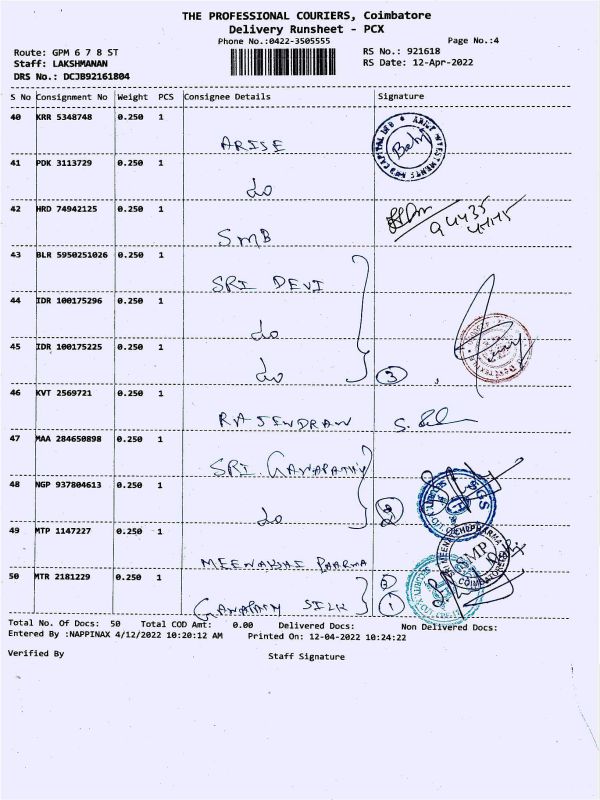 THE PROFESSIONAL COURIERS, Coimbatore
Delivery Runsheet - PCX
Phone No.:0422-3505555
Page No.:4
Route: GPM 6 7 8 ST
RS No.: 921618
Staff: LAKSHMANAN
RS Date: 12-Apr-2022
DRS No.: DCJB92161804
S No Consignment No Weight PCS Consignee Details Signature
40 KRR 5348748 0.250 1
ARISE
41 PDK 3113729 0.250 1
do
42 HRD 74942125 0.250 1
SMB
94435
43 BLR 5950251026 0.250 1
SRI DEVI
44 IDR 100175296 0.250 1
do
45 IDR 100175225 0.250 1
do
3
46 KVT 2569721 0.250 1
RAJENDRAN
47 MAA 284650898 0.250 1
SRI. GANAPATHY
48 NGP 937804613 0.250 1
do
2
SGS
49 MTP 1147227 0.250 1
MEENAKSHI PHARMA
SMP
50 MTR 2181229 0.250 1
GANAPATHY SILK
1
Total No. Of Docs: 50 Total COD Amt: 0.00 Delivered Docs: Non Delivered Docs:
Entered By :NAPPINAX 4/12/2022 10:20:12 AM Printed On: 12-04-2022 10:24:22
Verified By
Staff Signature